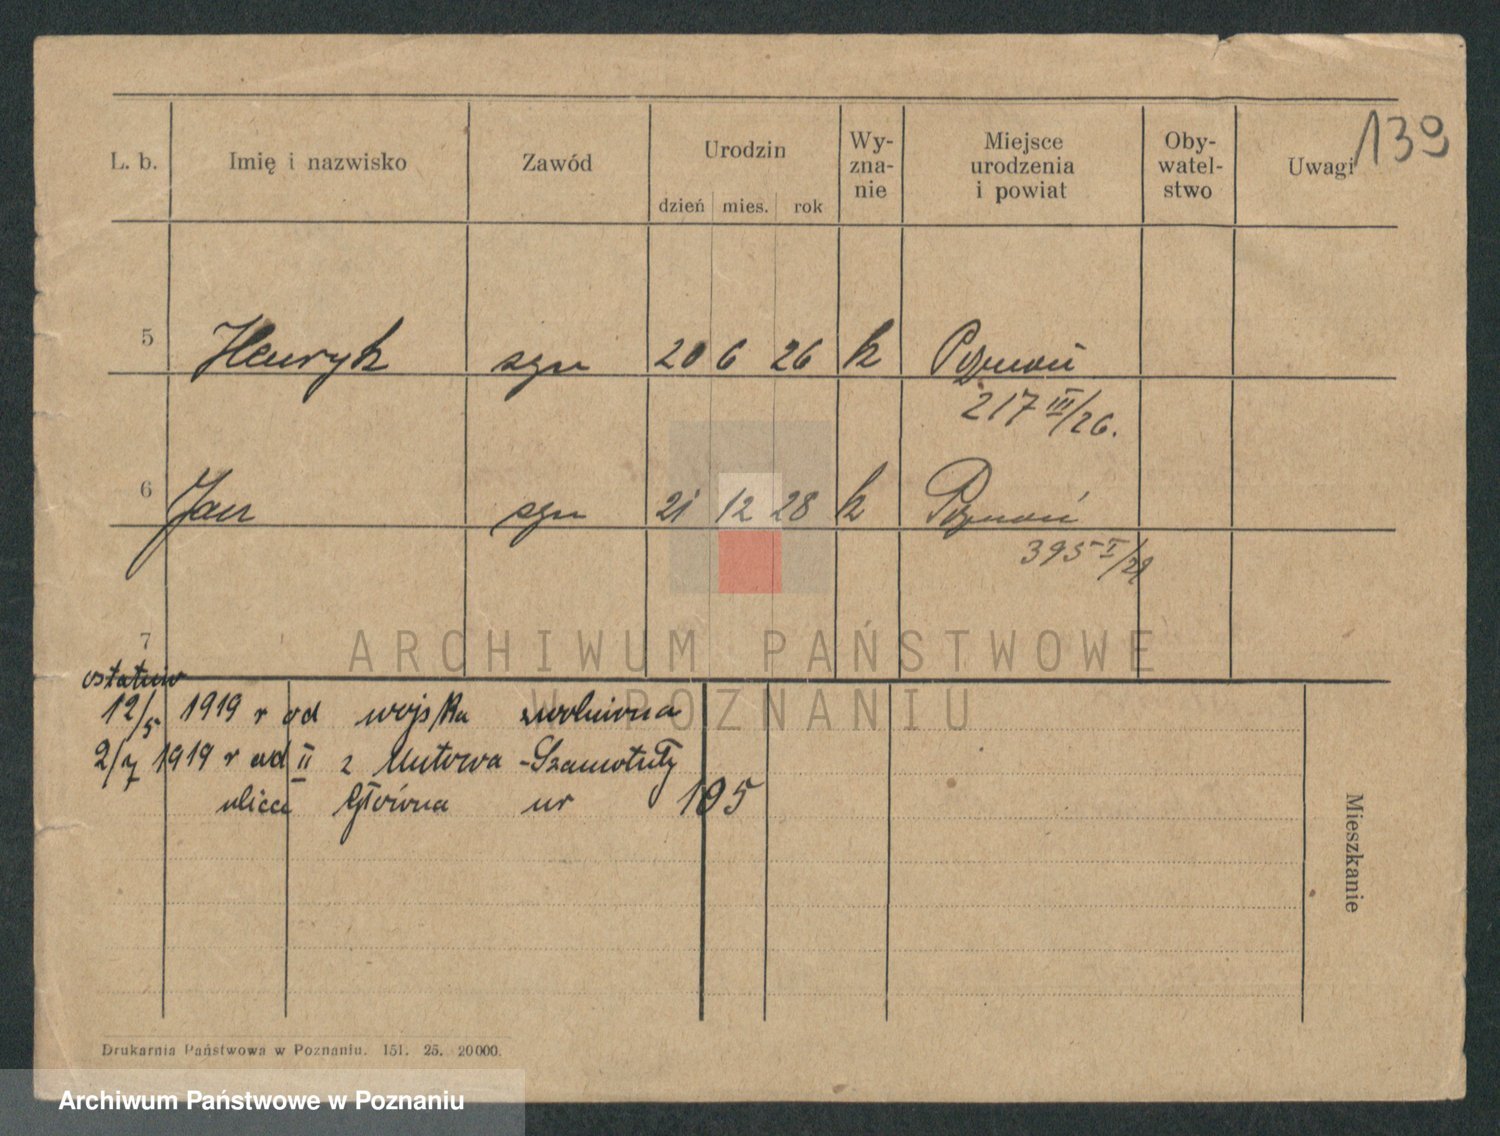 139
L. b. Imię i nazwisko Zawód Urodzin dzień mies. rok Wy-zna-nie Miejsce urodzenia i powiat Oby-watel-stwo Uwagi
5 Henryk syn 20 6 26 k Poznań
217 III/26.
6 Jan syn 21 12 28 k Poznań
395 I/29
7
ARCHIWUM PAŃSTWOWE
W POZNANIU
ostatnio
12/5 1919 r od wojska zwolniona
2/7 1919 r od II z -Szamotuły
ulica Główna nr 105
Mieszkanie
Drukarnia Państwowa w Poznaniu. 151. 25. 20000.
Archiwum Państwowe w Poznaniu